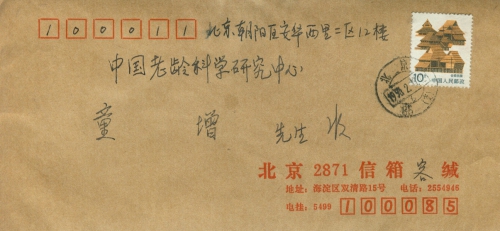 100011
北京朝阳区安华西里二区12楼
中国老龄科学研究中心
童增 先生 收
10分
中国人民邮政
北京
北京 2871 信箱 客缄
地址：海淀区双清路18号 电话：2554946
电挂：5499 100085